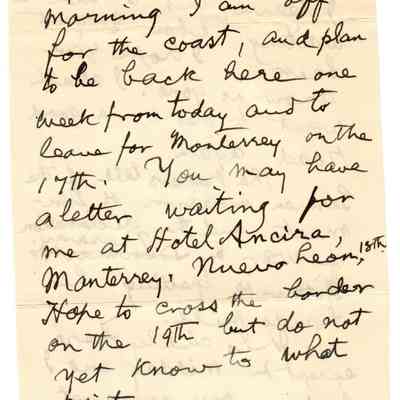 morning I am off
for the coast, and plan
to be back here one
week from today and to
leave for Monterrey on the
17th. You may have
a letter waiting for
me at Hotel Ancira,
Monterrey, Nuevo Leon, 18th.
Hope to cross the border
on the 19th but do not
yet know to what